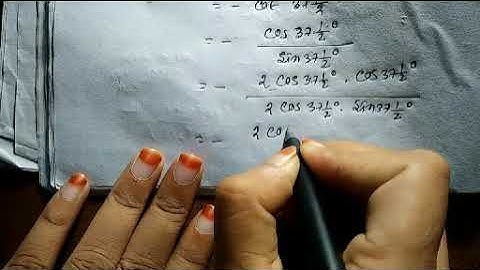 = - cot 37½°
= - cos 37½° / sin 37½°
= - 2 cos 37½° . cos 37½° / 2 cos 37½° . sin 37½°
= - 2 co